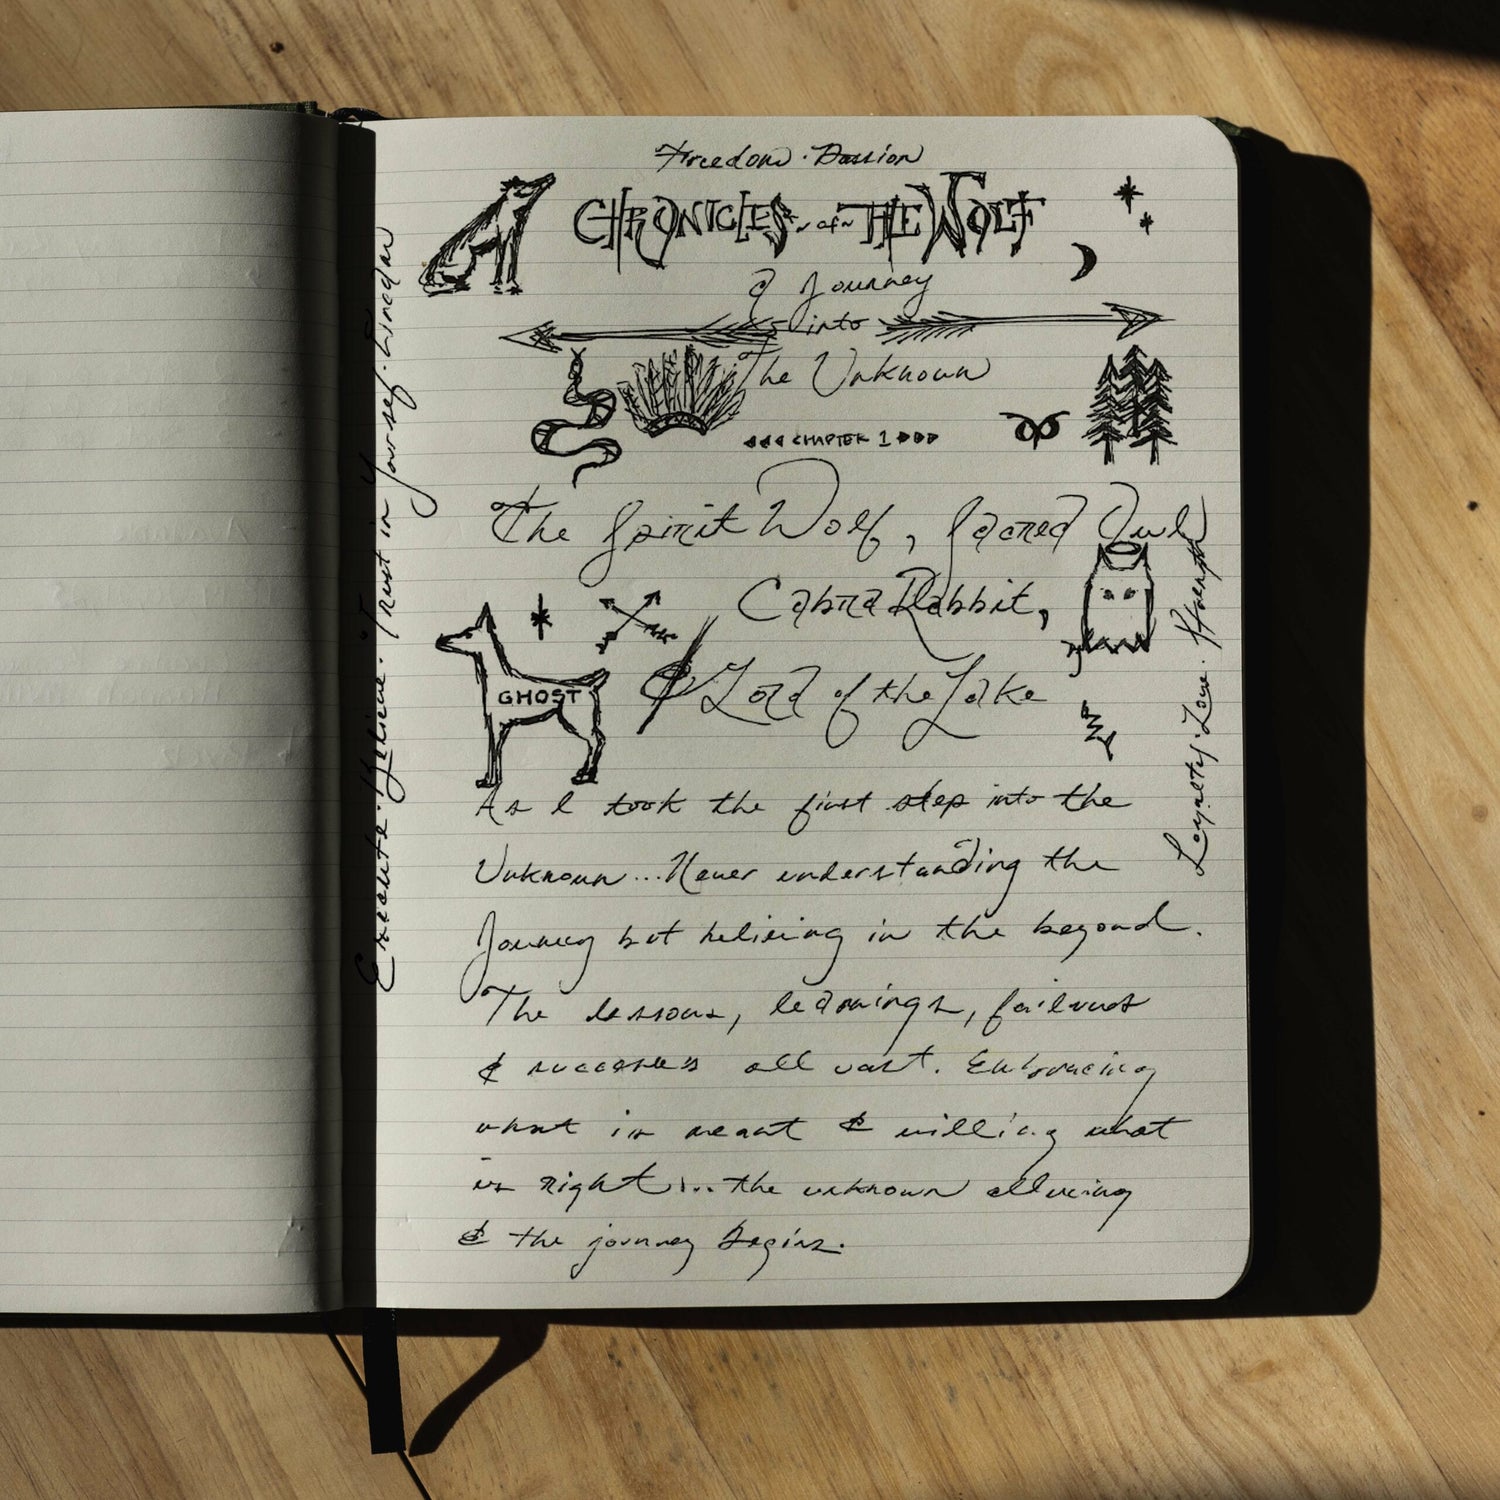 Freedom · Passion
CHRONICLES ~of~ THE WOLF
A Journey
into
The Unknown
CHAPTER 1
The Spirit Wolf, Sacred Owl
Cabra Rabbit,
& Lord of the Lake
GHOST
As I took the first step into the
Unknown...Never understanding the
Journey but beliving in the beyond.
The lessons, learnings, failures
& success's all vast. Embracing
what is meant & willing what
is right... the unknown alluring
& the journey begins.
Execute · Believe · Trust in Yourself ·
Loyalty · Love ·